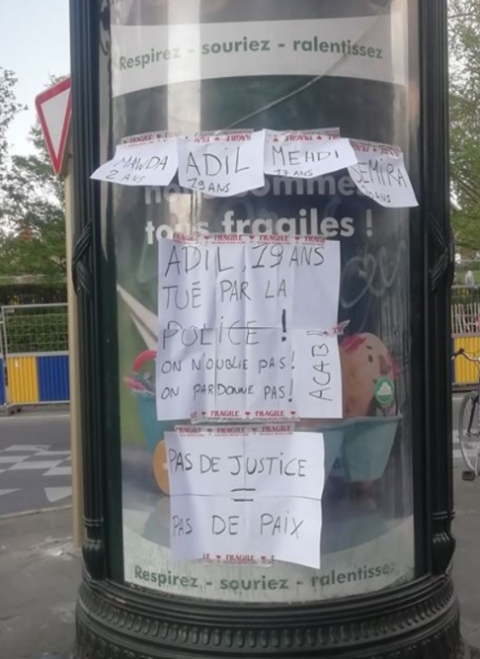 Respirez - souriez - ralentissez
MAWDA
2 ANS
ADIL
19 ANS
MEHDI
17 ANS
SEMIRA
nous sommes
tous fragiles !
FRAGILE FRAGILE FRAGILE
ADIL, 19 ANS
TUÉ PAR LA
POLICE !
ON N'OUBLIE PAS !
ON PARDONNE PAS !
ACAB !
FRAGILE FRAGILE
FRAGILE FRAGILE FRAGILE
PAS DE JUSTICE
=
PAS DE PAIX
FRAGILE
Respirez - souriez - ralentissez